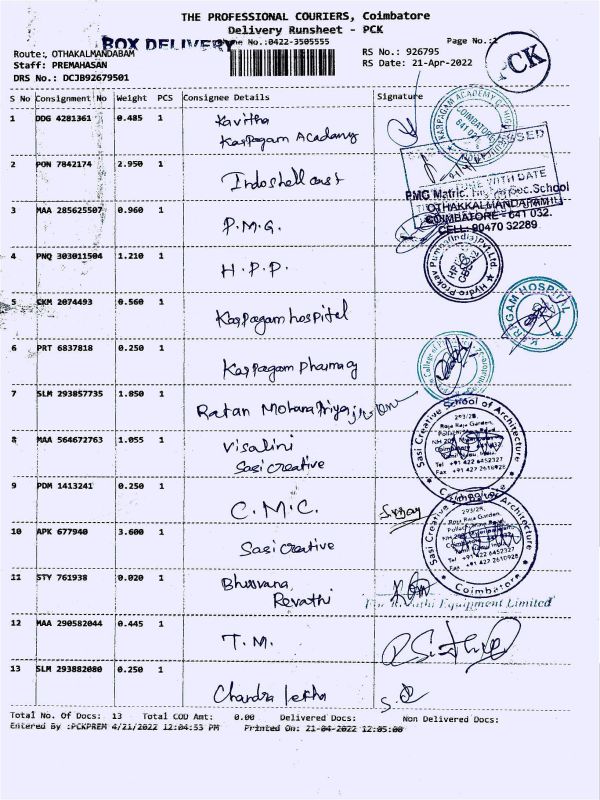 THE PROFESSIONAL COURIERS, Coimbatore
Delivery Runsheet - PCK
BOX DELIVERY
Phone No.:0422-3505555
Page No.:2
CK
Route: OTHAKALMANDABAM
RS No.: 926795
Staff: PREMAHASAN
RS Date: 21-Apr-2022
DRS No.: DCJB92679501
S No Consignment No Weight PCS Consignee Details Signature
1 DDG 4281361 0.485 1 Kavitha
Karpagam Academy
COIMBATORE
641 021
2 PON 7842174 2.950 1 Indoshell cast
WITH DATE
PMG Matric. Hr. Sec. School
OTHAKKALMANDAPAM
COIMBATORE - 641 032.
CELL: 90470 32289
3 MAA 285625507 0.960 1 P.M.G.
4 PNQ 303011504 1.210 1 H.P.P.
Hydro Prokav Pumps(India)Pvt.Ltd.
5 CKM 2074493 0.560 1 Karpagam hospital
KARPAGAM HOSPITAL
6 PRT 6837818 0.250 1 Karpagam Pharmacy
7 SLM 293857735 1.850 1 Ratan Mohana Priya
8 MAA 564672763 1.055 1 Visalini
Sasi creative
Sasi Creative School of Architecture
293/2B,
Raja Raja Garden,
Tel +91 422 6452327
Fax +91 422 2610928
Coimbatore
9 PDM 1413241 0.250 1 C.M.C.
10 APK 677940 3.600 1 Sasi creative
Sasi Creative School of Architecture
293/2B,
Raja Raja Garden,
Tel +91 422 6452327
Fax +91 422 2610928
Coimbatore
11 STY 761938 0.020 1 Bhuvana,
Revathi
For Revathi Equipment Limited
12 MAA 290582044 0.445 1 T.M.
13 SLM 293882080 0.250 1 Chandra lekha
Total No. Of Docs: 13 Total COD Amt: 0.00 Delivered Docs: Non Delivered Docs:
Entered By :PCKPREM 4/21/2022 12:04:53 PM Printed On: 21-04-2022 12:05:00